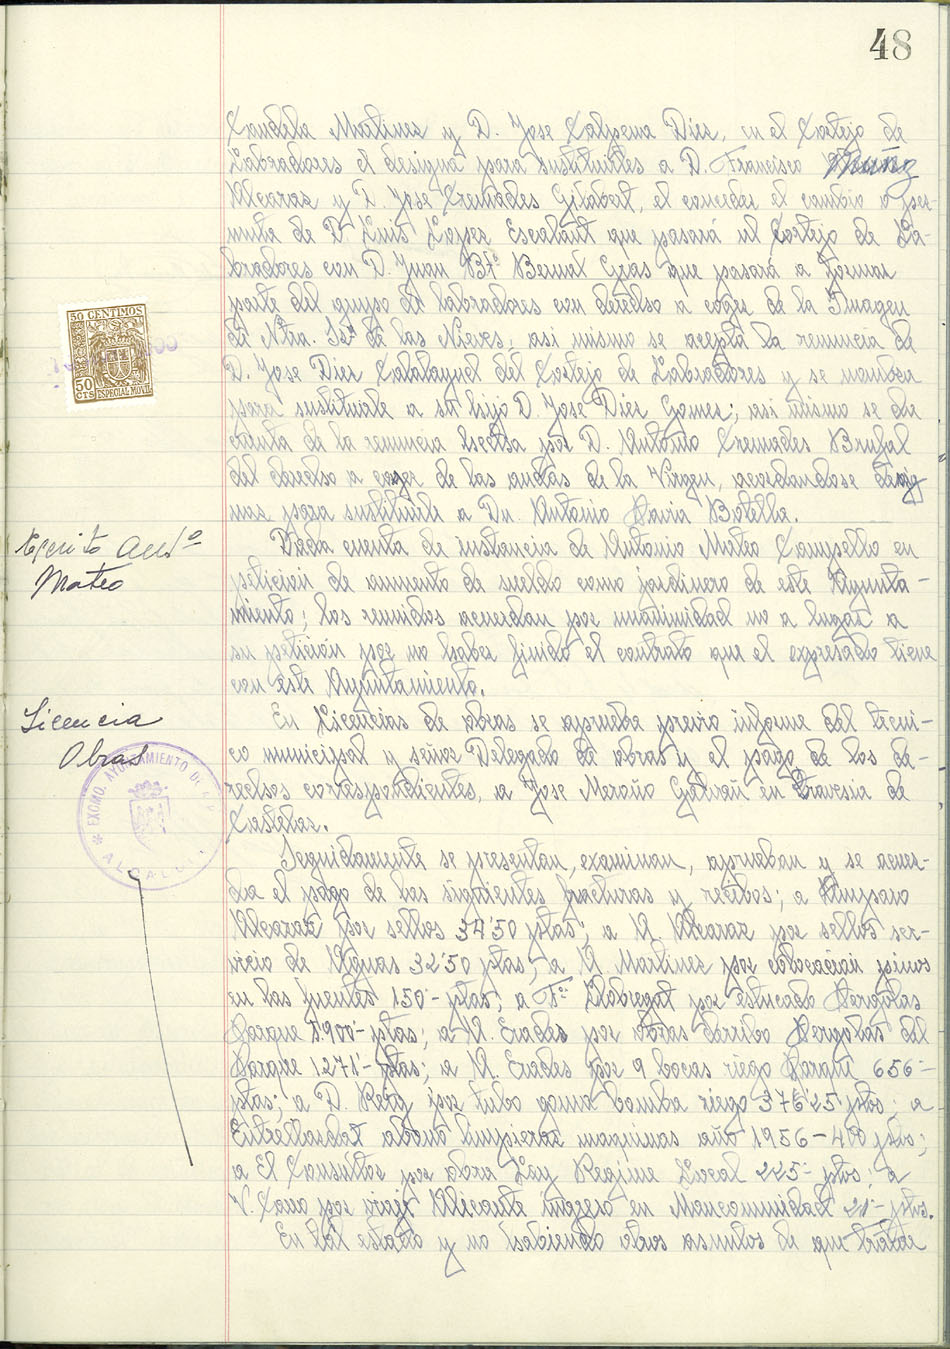 48
Candela Martinez y D. Jose Calpena Diez, en el Cortejo de
Labradores et designa para sustituirles a D. Francisco Muñoz
Alcaraz y D. Jose Cremades Gilabert, el conceder el cambio o per-
muta de D. Luis Lopez Escalant que pasará al Cortejo de La-
bradores con D. Juan Btª Bernal Gras que pasará a formar
parte del grupo de labradores con derecho a coger de la Imagen
de Ntra. Srª de las Nieves; asi mismo se acepta la renuncia de
D. Jose Diez Calatayud del Cortejo de Labradores y se nombra
para sustituirle a su hijo D. Jose Diez Gomez; asi mismo se da
cuenta de la renuncia escrita por D. Antonio Cremades Brufal
del derecho a coger de las andas de la Virgen, acordandose desig
nar para sustituirle a Dn. Antonio Pavia Botella.
50 CENTIMOS
50 CTS ESPECIAL MOVIL
Escrito Antº
Mateo
Dada cuenta de instancia de Antonio Mateo Campello en
peticion de aumento de sueldo como jardinero de este Ayunta-
miento; los reunidos acuerdan por unanimidad no a lugar a
su peticion por no haber finido el contrato que el expresado tiene
con este Ayuntamiento.
Licencia
Obras
EXCMO. AYUNTAMIENTO DE
ALCALDIA
En Licencias de obras se aprueba previo informe del tecni-
co municipal y señor Delegado de obras y el pago de los de-
rechos correspondientes, a Jose Meroño Galvañ en travesia de
Casteles.
Seguidamente se presentan, examinan, aprueban y se acuer-
da el pago de las siguientes facturas y recibos; a Amparo
Alcaraz por sellos 34'50 ptas; a A. Alcaraz por sellos ser-
vicio de Aguas 32'50 ptas; a A. Martinez por colocacion pinos
en las fuentes 150'- ptas; a Fº Llobregat por estucado Pergolas
Parque 1.900'- ptas; a A. Erades por obras derribo Pergolas del
Parque 1271'- ptas; a A. Erades por 9 bocas riego Parque 656'-
ptas; a D. Reig por tubo goma bomba riego 376'25 ptas; a
abono limpieza maquinas año 1956 - 400 ptas;
a El Consultor por obra Ley Regimen Local 225'- ptas; a
V. Cano por viaje Alicante ingreso en Mancomunidad 21'- ptas.
En tal estado y no habiendo otros asuntos de que tratar